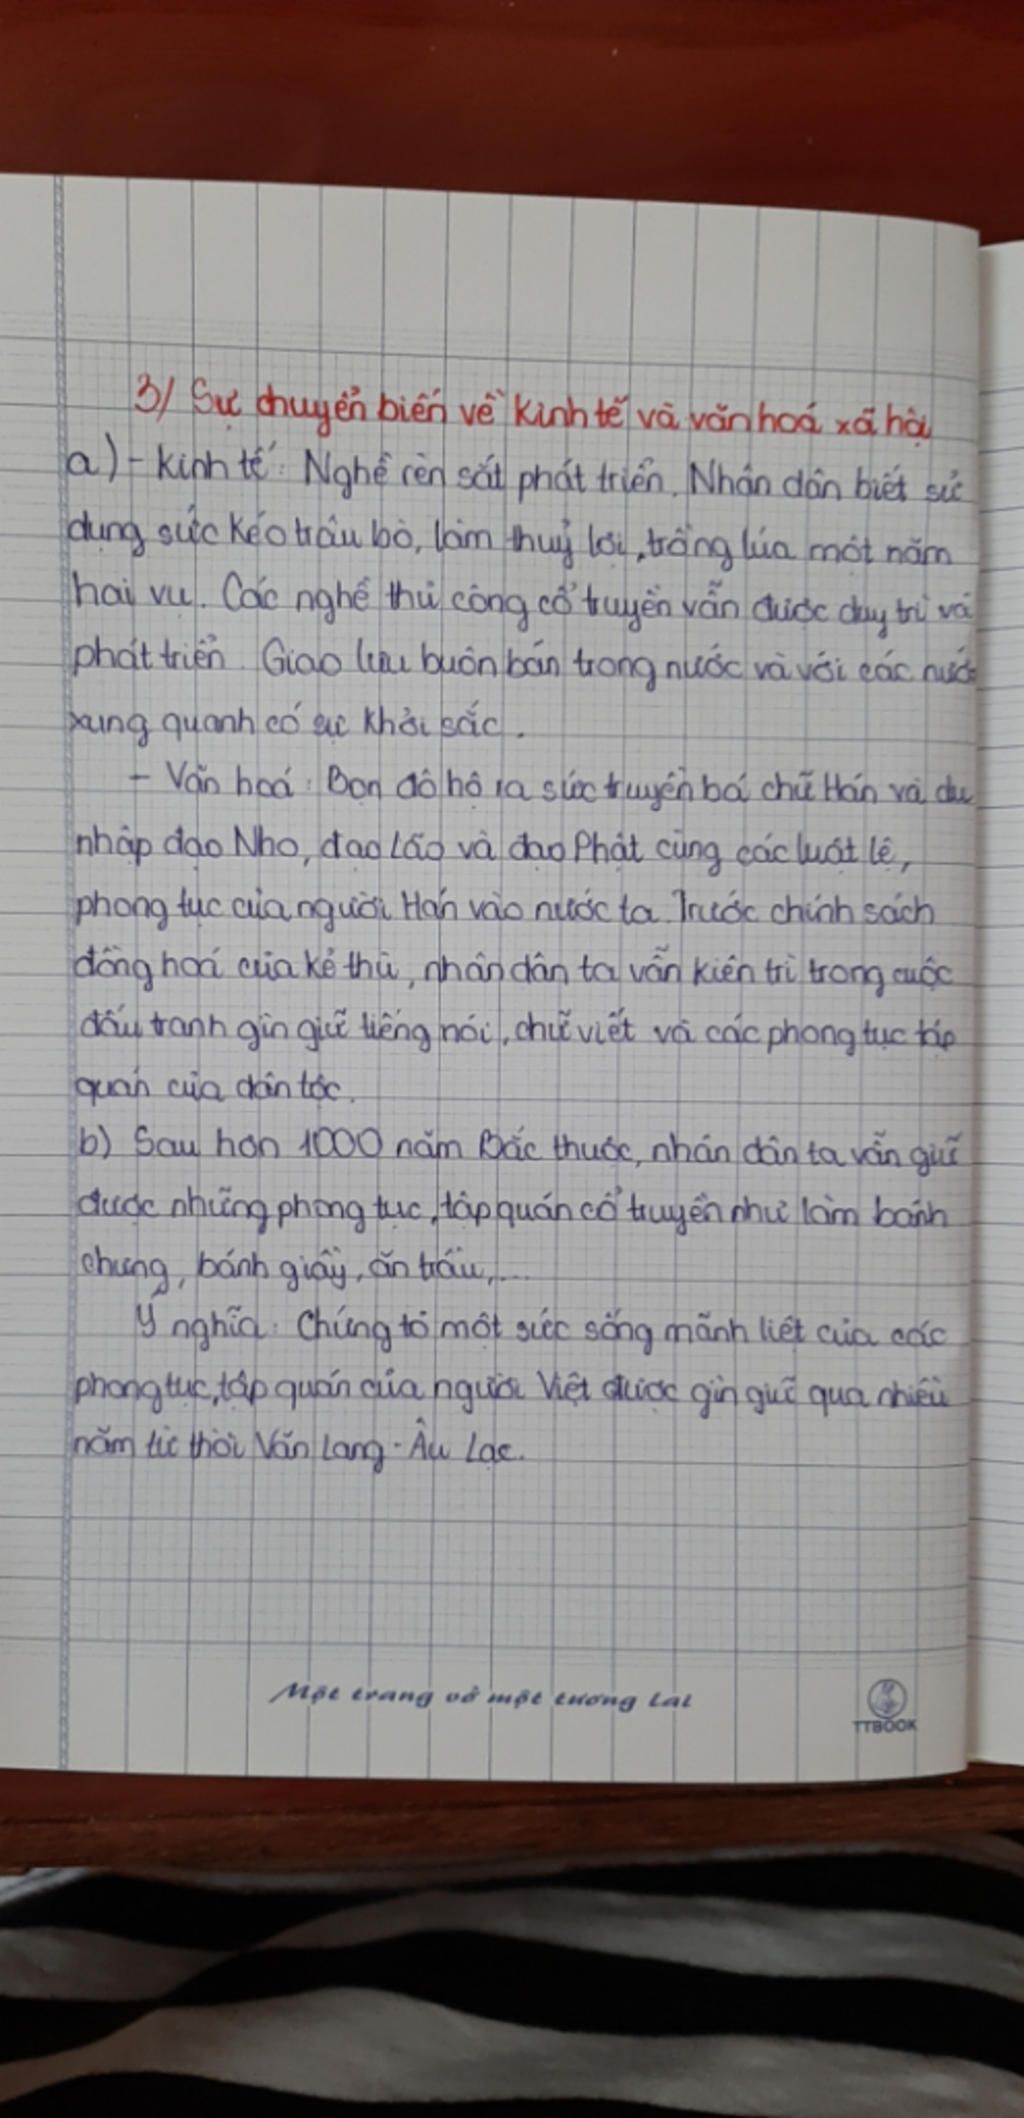 3/ Sự chuyển biến về kinh tế và văn hoá xã hội
a) - Kinh tế: Nghề rèn sắt phát triển. Nhân dân biết sử
dụng sức kéo trâu bò, làm thuỷ lợi, trồng lúa một năm
hai vụ. Các nghề thủ công cổ truyền vẫn được duy trì và
phát triển. Giao lưu buôn bán trong nước và với các nước
xung quanh có sự khởi sắc.
- Văn hoá: Bọn đô hộ ra sức truyền bá chữ Hán và du
nhập đạo Nho, đạo Lão và đạo Phật cùng các luật lệ,
phong tục của người Hán vào nước ta. Trước chính sách
đồng hoá của kẻ thù, nhân dân ta vẫn kiên trì trong cuộc
đấu tranh gìn giữ tiếng nói, chữ viết và các phong tục tập
quán của dân tộc.
b) Sau hơn 1000 năm Bắc thuộc, nhân dân ta vẫn giữ
được những phong tục, tập quán cổ truyền như làm bánh
chưng, bánh giầy, ăn trầu,...
Ý nghĩa: Chứng tỏ một sức sống mãnh liệt của các
phong tục, tập quán của người Việt được gìn giữ qua nhiều
năm từ thời Văn Lang - Âu Lạc.
Một trang vở một tương lai
TTBOOK